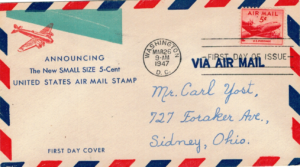 ANNOUNCING
The New SMALL SIZE 5-Cent
UNITED STATES AIR MAIL STAMP
FIRST DAY COVER
WASHINGTON
MAR 26
9-AM
1947
D.C.
AIR MAIL
5¢
FIRST DAY OF ISSUE
VIA AIR MAIL
Mr. Carl Yost,
727 Foraker Ave.,
Sidney, Ohio.